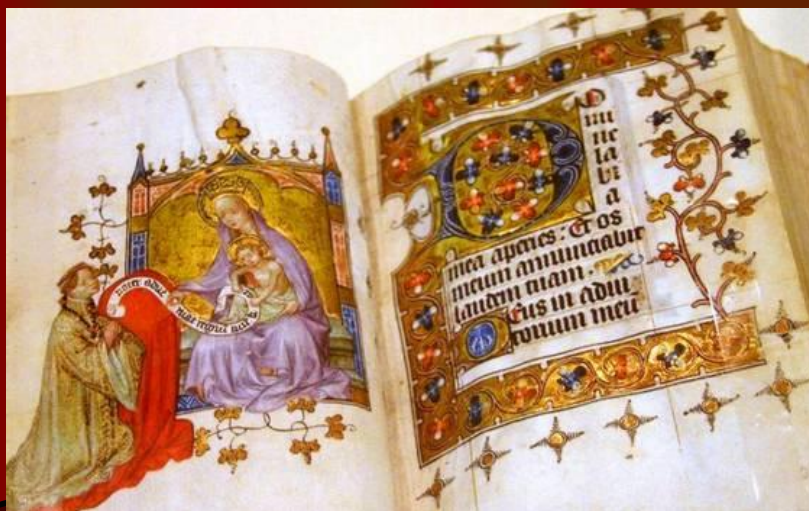 Do
mi
ne
la
bi
a
mea aperies: Et os
meum annunciabit
laudem tuam.
Deus in adiu
torium meu